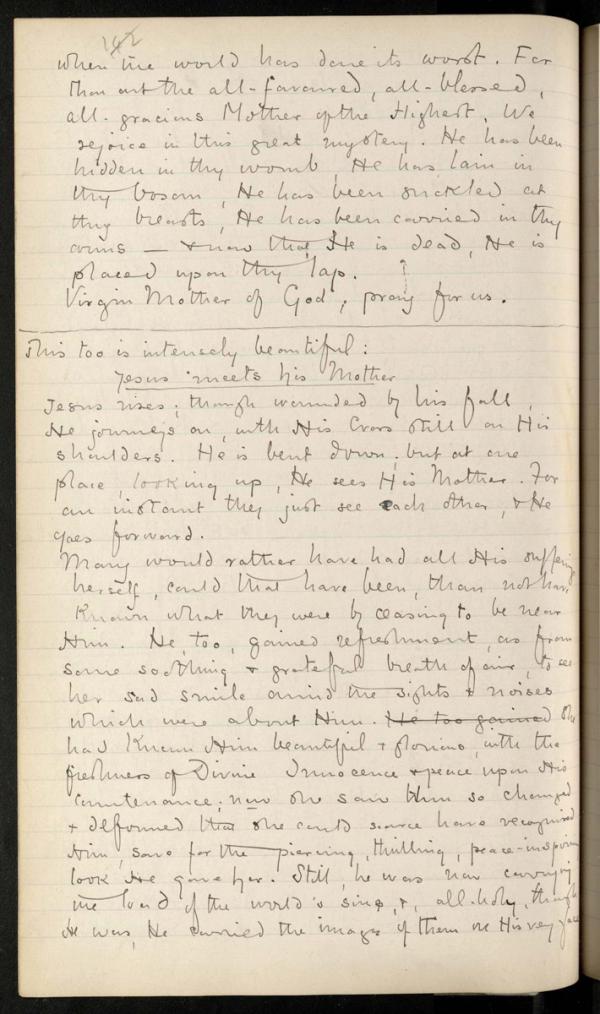 142
when the world has done its worst. For
thou art the all-favoured, all-blessed,
all-gracious Mother of the Highest. We
rejoice in this great mystery. He has been
hidden in thy womb, He has lain in
thy bosom, He has been suckled at
thy breasts, He has been carried in thy
arms — & now that He is dead, He is
placed upon thy lap.
Virgin Mother of God, pray for us.
This too is intensely beautiful:
Jesus meets his Mother
Jesus rises; though wounded by his fall,
He journeys on, with His Cross still on His
shoulders. He is bent down; but at one
place, looking up, He sees His Mother. For
an instant they just see each other, & He
goes forward.
Mary would rather have had all His suffering
herself, could that have been, than not have
known what they were by ceasing to be near
Him. He, too, gained refreshment, as from
some soothing & grateful breath of air, to see
her sad smile amid the sights & noises
which were about Him. He too gained She
had known Him beautiful & glorious, with the
freshness of Divine Innocence & peace upon His
countenance; now she saw Him so changed
& deformed that she could scarce have recognised
Him, save for the piercing, thrilling, peace-inspiring
look He gave her. Still, he was now carrying
the load of the world's sins, &, all-holy, though
He was, He carried the image of them on His very face